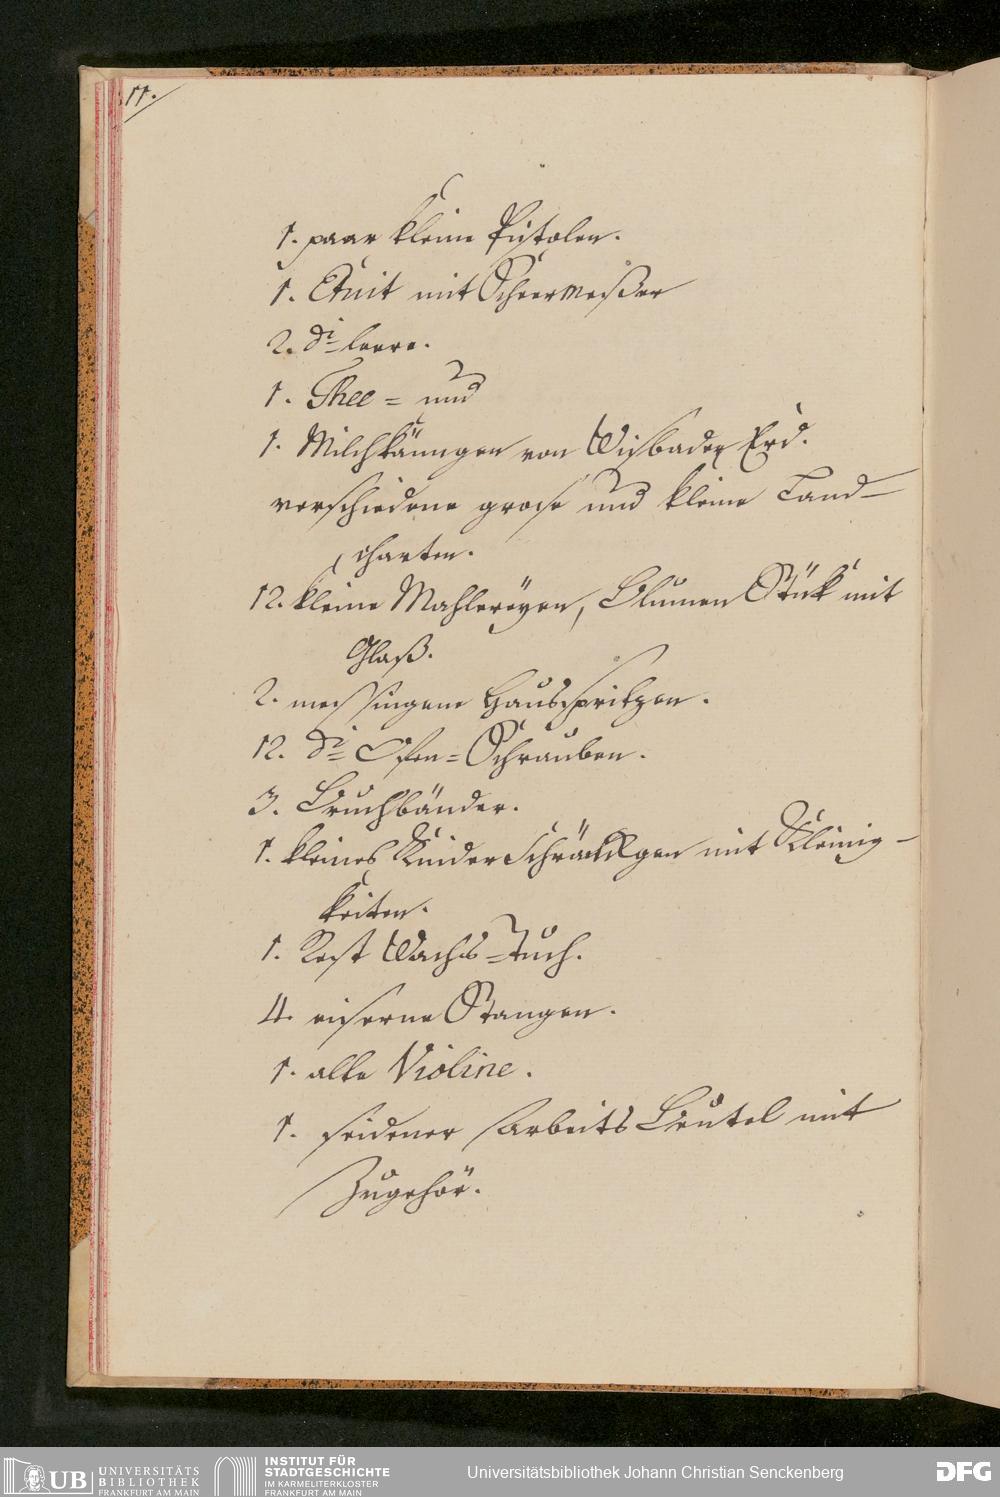 11.
1. paar kleine Pistolen.
1. Etuit mit Scheermeßer
2. do leere.
1. Thee = und
1. Milchkänngen von Wisbader Erd.
verschiedene grose und kleine Land-
charten.
12. kleine Mahlereyen, Blumen Stük mit
Glaß.
2. messingene Hausspritzen.
12. do Ofen=Schrauben.
3. Bruchbänder.
1. kleines Kinder Schränkgen mit Kleinig-
keiten.
1. Rest Wachs=Tuch.
4. eiserne Stangen.
1. alte Violine.
1. seidener Arbeits Beutel mit
Zugehör.
UB UNIVERSITÄTS
BIBLIOTHEK
FRANKFURT AM MAIN
INSTITUT FÜR
STADTGESCHICHTE
IM KARMELITERKLOSTER
FRANKFURT AM MAIN
Universitätsbibliothek Johann Christian Senckenberg
DFG